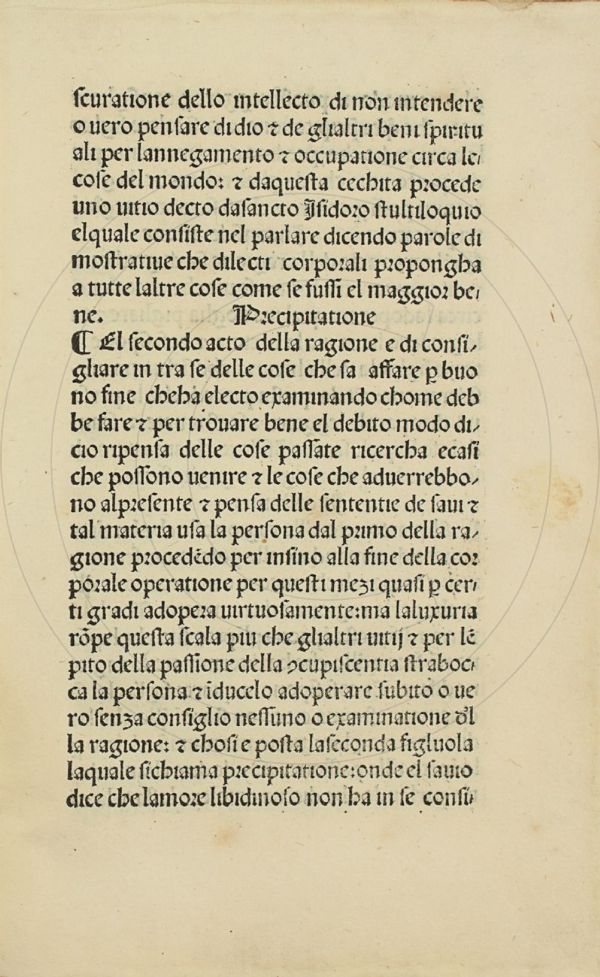 ſcuratione dello intellecto di non intendere
o uero penſare di dio ⁊ de glialtri beni ſpiritu
ali per lannegamento ⁊ occupatione circa le⸗
coſe del mondo: ⁊ daqueſta cechita procede
uno uitio decto daſancto Iſidoro ſtultiloquio
elquale conſiſte nel parlare dicendo parole di
moſtratiue che dilecti corporali propongha
a tutte laltre coſe come ſe fuſſi el maggior be⸗
ne. Precipitatione
¶ El ſecondo acto della ragione e di conſi⸗
gliare in tra ſe delle coſe che ſa affare ꝑ buo
no fine cheha electo examinando chome deb
be fare ⁊ per trouare bene el debito modo di⸗
cio ripenſa delle coſe paſſate ricercha ecaſi
che poſſono uenire ⁊ le coſe che aduerrebbo⸗
no alpreſente ⁊ penſa delle ſententie de ſaui ⁊
tal materia uſa la perſona dal primo della ra⸗
gione procedēdo per inſino alla fine della cor
porale operatione per queſti mezi quaſi ꝑ cer⸗
ti gradi adopera uirtuoſamente:ma laluxuria
rōpe queſta ſcala piu che glialtri uitij ⁊ per lē
pito della paſſione della ꝯcupiſcentia ſtraboc⸗
ca la perſona ⁊ īducelo adoperare ſubito o ue
ro ſenza conſiglio neſſuno o examinatione d̄l
la ragione: ⁊ choſi e poſta laſeconda figluola
laquale ſichiama precipitatione:onde el ſauio
dice che lamore libidinoſo non ha in ſe conſi⸗